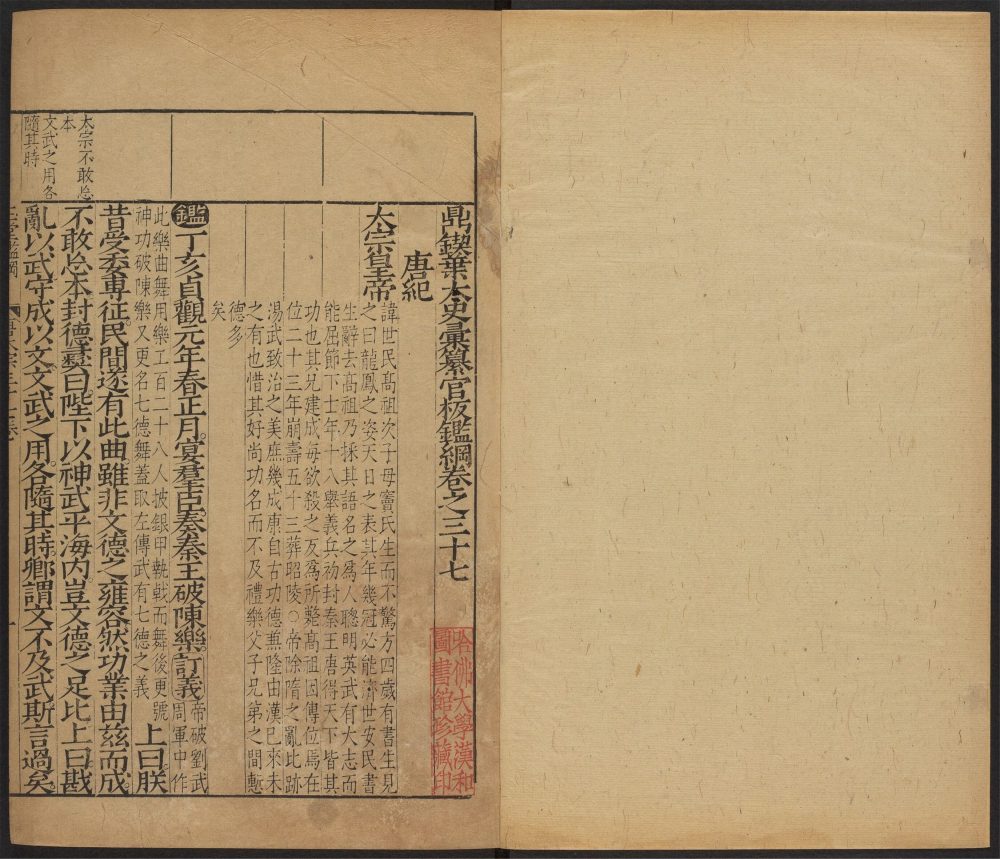 鼎鍥葉太史彙纂官板鑑綱卷之三十七
唐紀
太宗皇帝
諱世民髙祖次子母竇氏生而不驚方四歲有書生見
之曰龍鳳之姿天日之表其年幾冠必能濟世安民書
生辭去高祖乃採其語名之爲人聰明英武有大志而
能屈節下士年十八舉義兵初封秦王唐得天下皆其
功也其兄建成毎欲殺之反爲所斃高祖因傳位焉在
位二十三年崩壽五十三葬昭陵○帝除隋之亂比跡
湯武致治之美庶幾成康自古功德兼隆由漢已來未
之有也惜其好尚功名而不及禮樂父子兄弟之間慙
德多
矣
鑑丁亥貞觀元年春正月宴羣臣奏秦王破陳樂訂義帝破劉武
周軍中作
此樂曲舞用樂工百二十八人披銀甲執戟而舞後更號
神功破陳樂又更名七德舞蓋取左傳武有七德之義
上曰朕
昔受委專征民間遂有此曲雖非文德之雍容然功業由兹而成
不敢忘本封德彝曰陛下以神武平海內豈文德之足比上曰戡
亂以武守成以文文武之用各隨其時卿謂文不及武斯言過矣
太宗不敢忘
本
文武之用各
隨其時
哈佛大學漢和
圖書館珍藏印